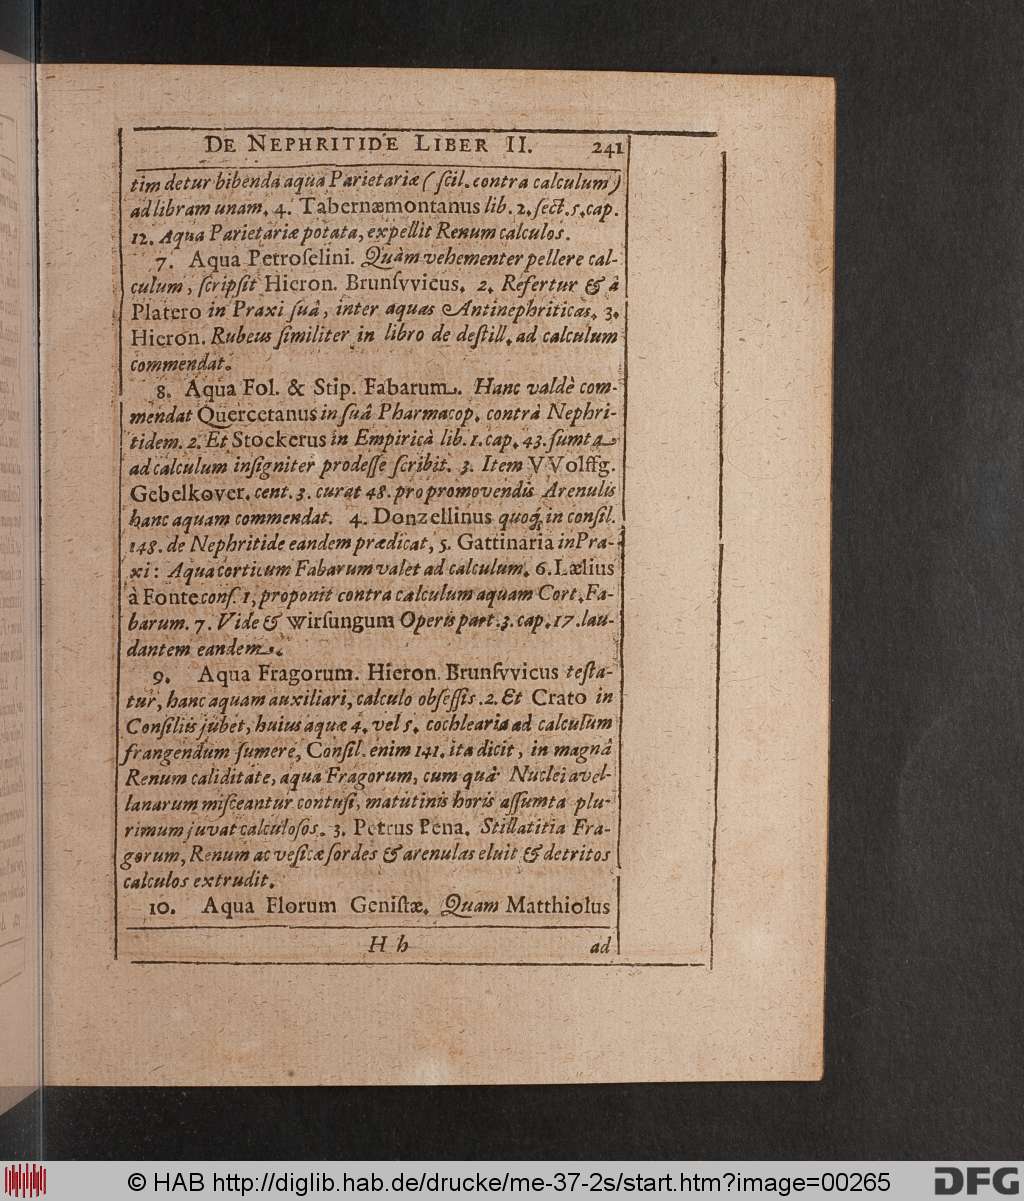 DE NEPHRITIDE LIBER II. 241
tim detur bibenda aqua Parietariæ (ſcil. contra calculum)
ad libram unam. 4. Tabernæmontanus lib. 2. ſect. 5. cap.
12. Aqua Parietariæ potata, expellit Renum calculos.
7. Aqua Petroſelini. Quàm vehementer pellere cal-
culum, ſcripſit Hieron. Brunſvvicus. 2. Refertur & â
Platero in Praxi ſuâ, inter aquas Antinephriticas. 3.
Hieron. Rubeus ſimiliter in libro de deſtill. ad calculum
commendat.
8. Aqua Fol. & Stip. Fabarum. Hanc valdè com-
mendat Quercetanus in ſuâ Pharmacop. contrà Nephri-
tidem. 2. Et Stockerus in Empiricà lib. 1. cap. 43. ſumta
ad calculum inſigniter prodeſſe ſcribit. 3. Item VVolffg.
Gebelkover. cent. 3. curat 48. pro promovendis Arenulis
hanc aquam commendat. 4. Donzellinus quoq́; in conſil.
148. de Nephritide eandem prædicat, 5. Gattinaria in Pra-
xi: Aqua corticum Fabarum valet ad calculum. 6. Lælius
à Fonte conſ. 1, proponit contra calculum aquam Cort. Fa-
barum. 7. Vide & wirſungum Operis part. 3. cap. 17. lau-
dantem eandem.
9. Aqua Fragorum. Hieron. Brunſvvicus teſta-
tur, hanc aquam auxiliari, calculo obſeſſis. 2. Et Crato in
Conſiliis jubet, huius aquæ 4. vel 5. cochlearia ad calculum
frangendum ſumere, Conſil. enim 141. ita dicit, in magnâ
Renum caliditate, aqua Fragorum, cum quâ Nuclei avel-
lanarum miſceantur contuſi, matutinis horis aſſumta plu-
rimum juvat calculoſos. 3. Petrus Pena. Stillatitia Fra-
gorum, Renum ac veſicæ ſordes & arenulas eluit & detritos
calculos extrudit.
10. Aqua Florum Geniſtæ. Quam Matthiolus
H h ad
© HAB http://diglib.hab.de/drucke/me-37-2s/start.htm?image=00265
DFG